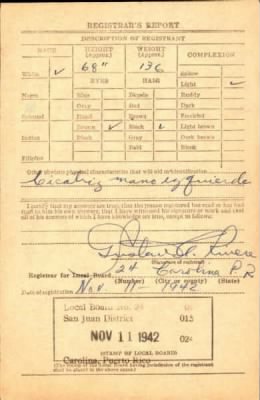 REGISTRAR'S REPORT
DESCRIPTION OF REGISTRANT
RACE
HEIGHT (Approx.)
WEIGHT (Approx.)
COMPLEXION
68"
136
White ✓
Sallow
EYES
HAIR
Light ✓
Negro
Blue
Blonde
Ruddy
Gray
Red
Dark
Oriental
Hazel
Brown
Freckled
Brown ✓
Black ✓
Light brown
Indian
Black
Gray
Dark brown
Bald
Black
Filipino
Other obvious physical characteristics that will aid in identification
Cicatriz mano izquierda
I certify that my answers are true; that the person registered has read or has had
read to him his own answers; that I have witnessed his signature or mark and
all of his answers of which I have knowledge are true, except as follows:
Rivera
Signature of registrar
Registrar for Local Board 24 Carolina P.R.
(Number) (City or county) (State)
Date of registration Nov. 1942
Local Board No. 24
San Juan District
015
NOV 11 1942
024
STAMP OF LOCAL BOARD
Carolina, Puerto Rico
(The stamp of the Local Board having jurisdiction of the registrant
shall be placed in the above space)